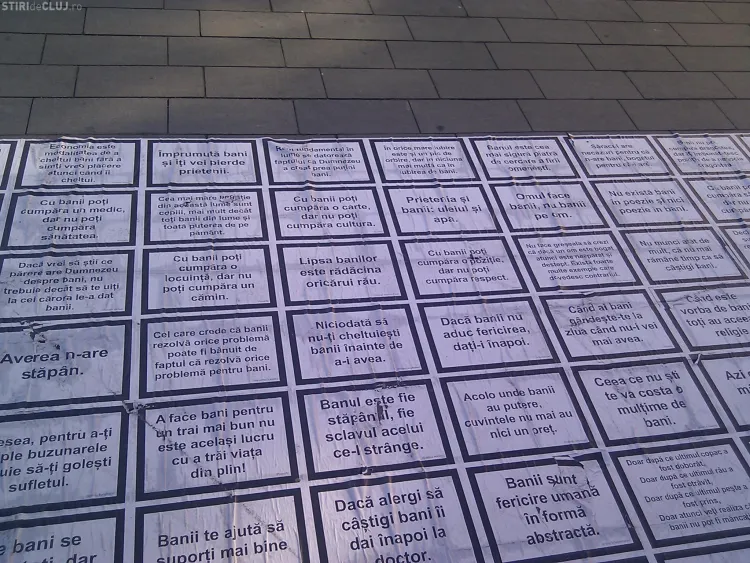 STIRIdeCLUJ.ro
Economia este
modalitatea de a
cheltui bani fără a
simți vreo plăcere
atunci când îi
cheltui.
Împrumută bani
și îți vei pierde
prietenii.
lume se datorează
faptului că Dumnezeu
a creat prea puțini
bani.
În orice mare iubire
este și un pic de
orbire, dar în niciuna
mai multă ca în
iubirea de bani.
Banul este cea
mai sigură piatră
de cercare a firii
omenești.
Săracii are
necazuri pentru că
n-are bani, bogatul
pentru că are.
Cu banii poți
cumpăra un medic,
dar nu poți
cumpăra
sănătatea.
Cea mai mare bogăție
din această lume sunt
copiii, mai mult decât
toți banii din lume și
toată puterea de pe
pământ.
Cu banii poți
cumpăra o carte,
dar nu poți
cumpăra cultura.
Prieteria și
banii: uleiul și
apă.
Omul face
banii, nu banii
pe om.
Nu există bani
în poezie și nici
poezie în bani.
Dacă vrei să știi ce
părere are Dumnezeu
despre bani, nu
trebuie decât să te uiți
la cei cărora le-a dat
banii.
Cu banii poți
cumpăra o
locuință, dar nu
poți cumpăra un
cămin.
Lipsa banilor
este rădăcina
oricărui rău.
Cu banii poți
cumpăra o poziție,
dar nu poți
cumpăra respect.
Nu face greșeala să crezi
că dacă un om este bogat
atunci este neapărat și
deștept. Există toate
multe exemple care
dovedesc contrariul.
Nu munci atât de
mult, că ultimă
rămâne timp ca să
câștigi bani.
Averea n-are
stăpân.
Cel care crede că banii
rezolvă orice problemă
poate fi bănuit de
faptul că rezolvă orice
problemă pentru bani.
Niciodată să
nu-ți cheltuiești
banii înainte de
a-i avea.
Dacă banii nu
aduc fericirea,
dați-i înapoi.
Când ai bani
gândește-te la
ziua când nu-i vei
mai avea.
Când este
vorba de bani
toți au aceeași
religie
esea, pentru a-ți
ple buzunarele
uie să-ți golești
sufletul.
A face bani pentru
un trai mai bun nu
este același lucru
cu a trăi viața
din plin!
Banul este fie
stăpânul, fie
sclavul acelui
ce-l strânge.
Acolo unde banii
au putere,
cuvintele nu mai au
nici un preț.
Ceea ce nu ști
te va costa o
mulțime de
bani.
e bani se
Banii te ajută să
suporți mai bine
Dacă alergi să
câștigi bani îi
dai înapoi la
doctor.
Banii sunt
fericire umană
în formă
abstractă.
Doar după ce ultimul copac a
fost doborât,
Doar după ce ultimul râu a
fost otrăvit,
Doar după ce ultimul pește a
fost prins,
Doar atunci veți realiza că
banii nu pot fi mâncați